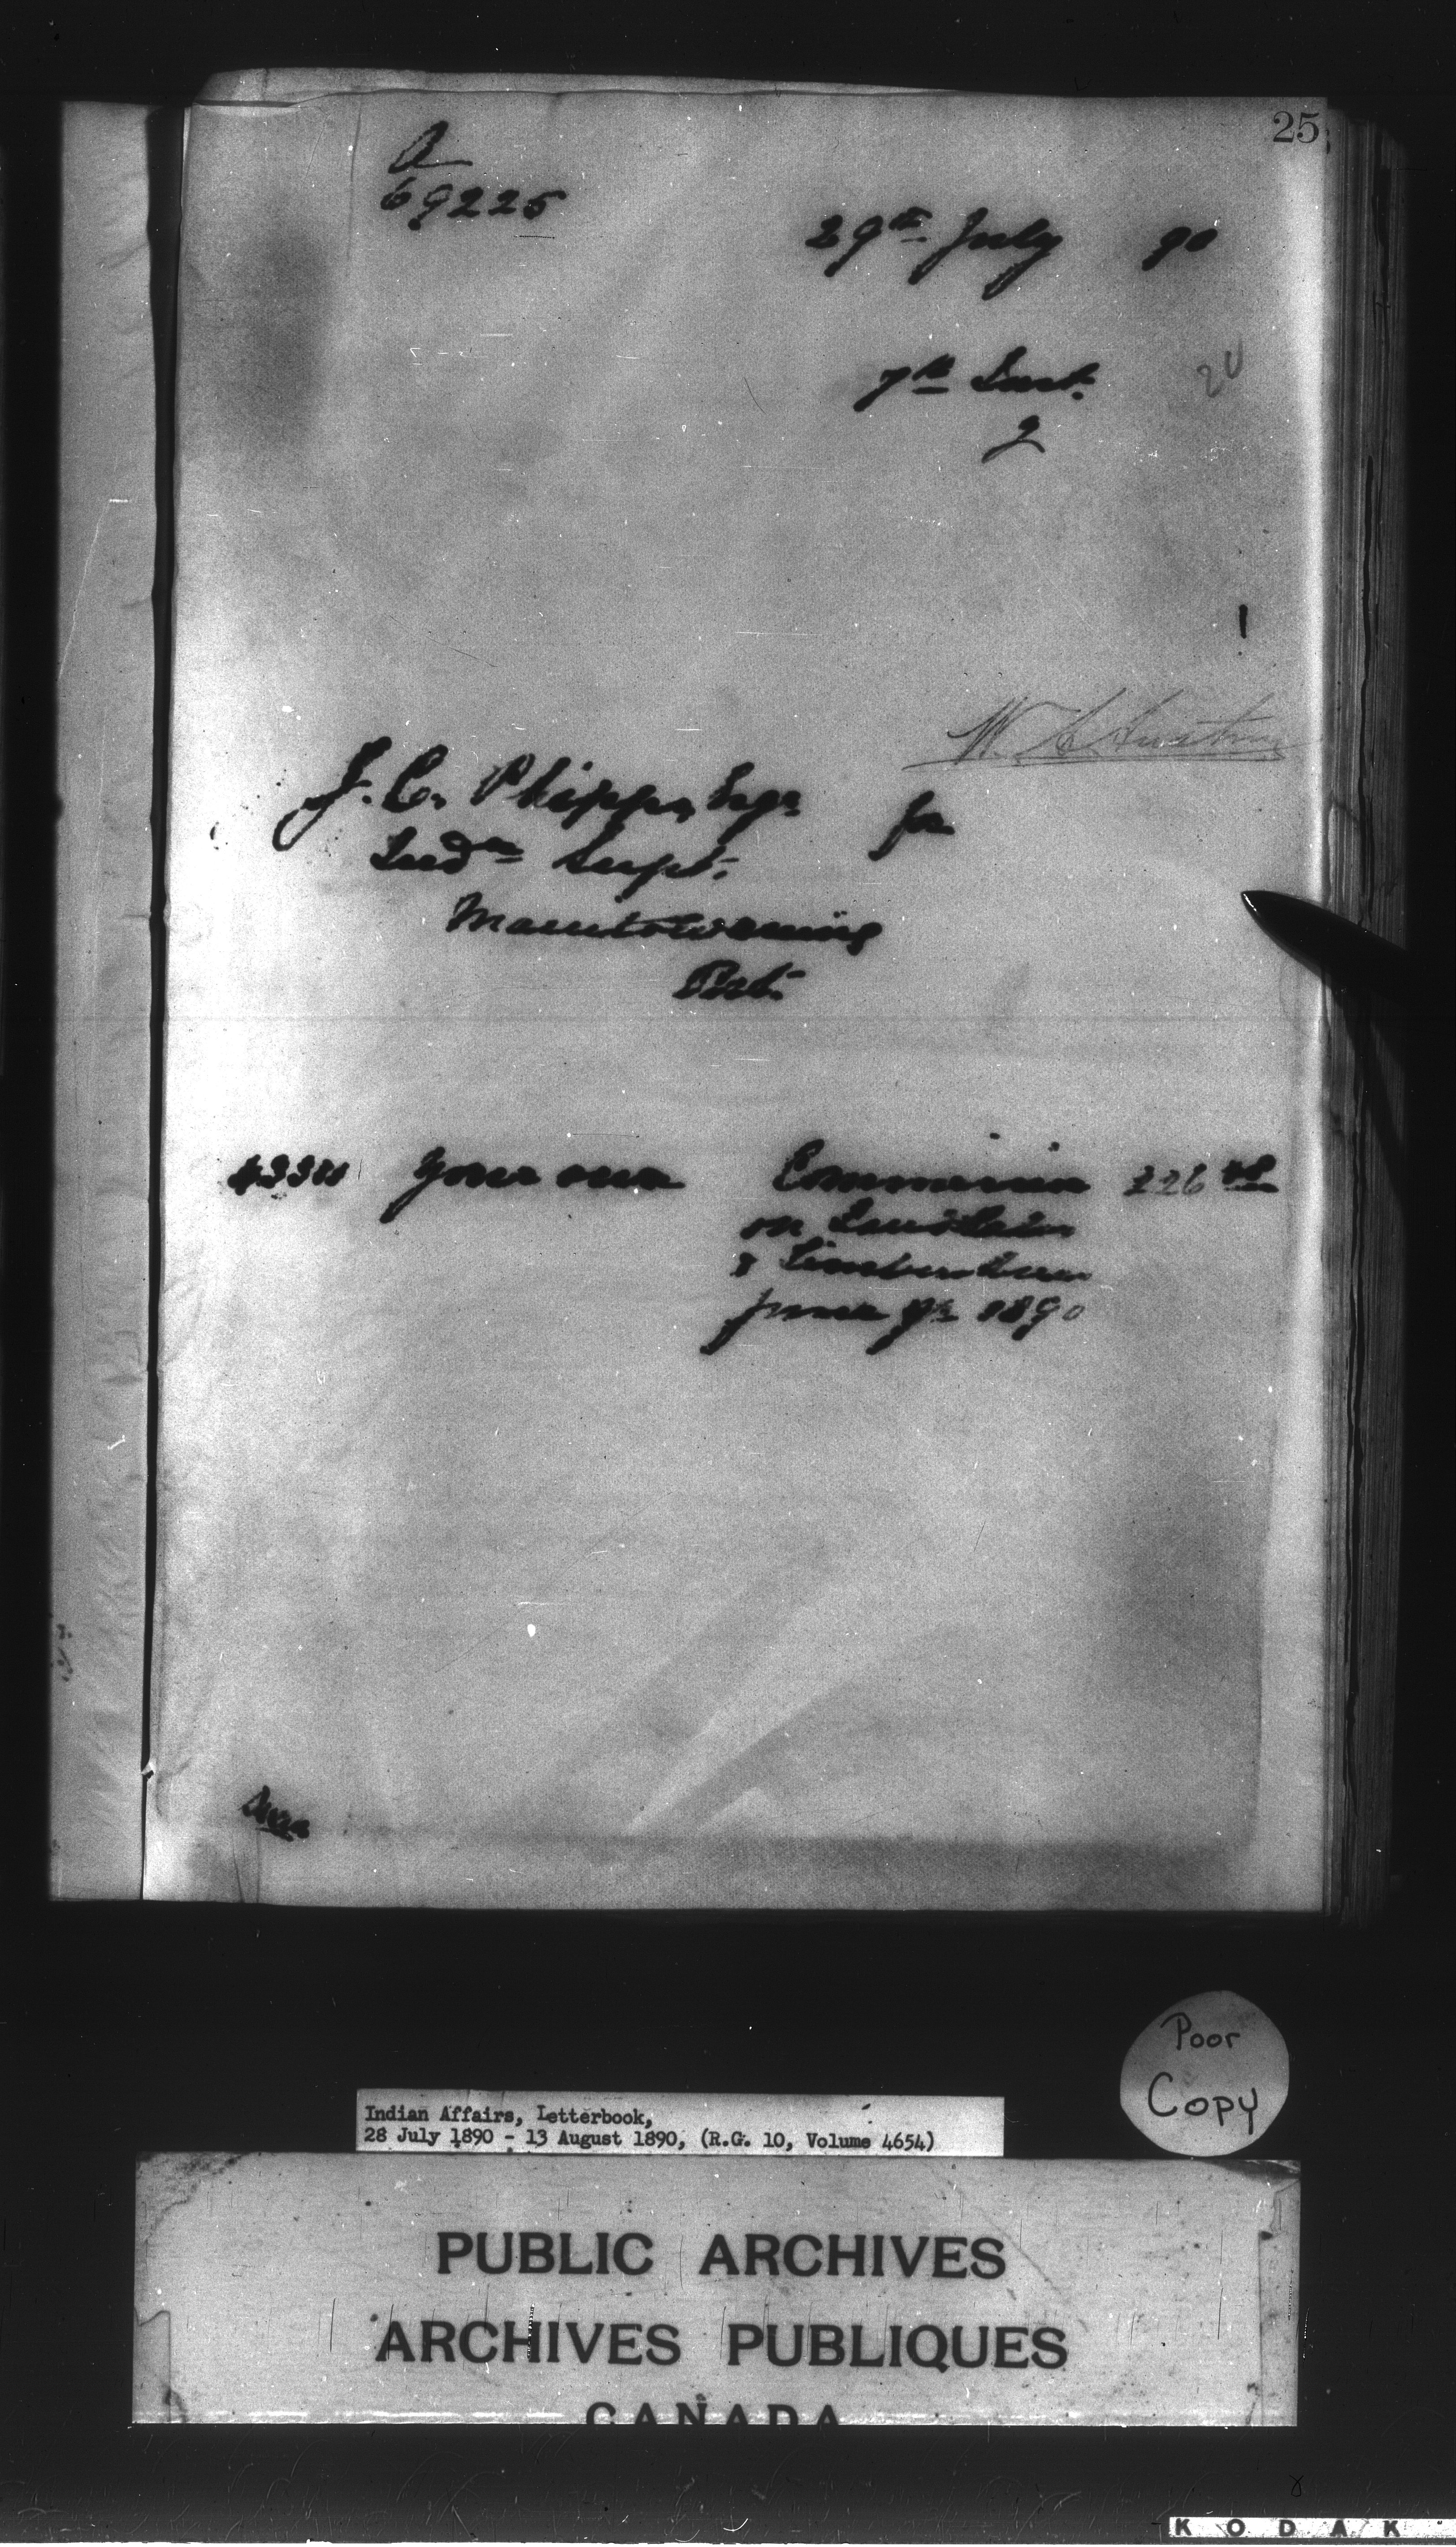 25
A
69225
29th July 90
7th Inst.
2
W. A. Austin
J. C. Phipps, Esqr for
Indn Supt.
Manitowaning
Ont.
your own Commission 226
on
& Timber dues
June qr 1890
Poor
Copy
Indian Affairs, Letterbook,
28 July 1890 - 13 August 1890, (R.G. 10, Volume 4654)
PUBLIC ARCHIVES
ARCHIVES PUBLIQUES
CANADA
KODAK